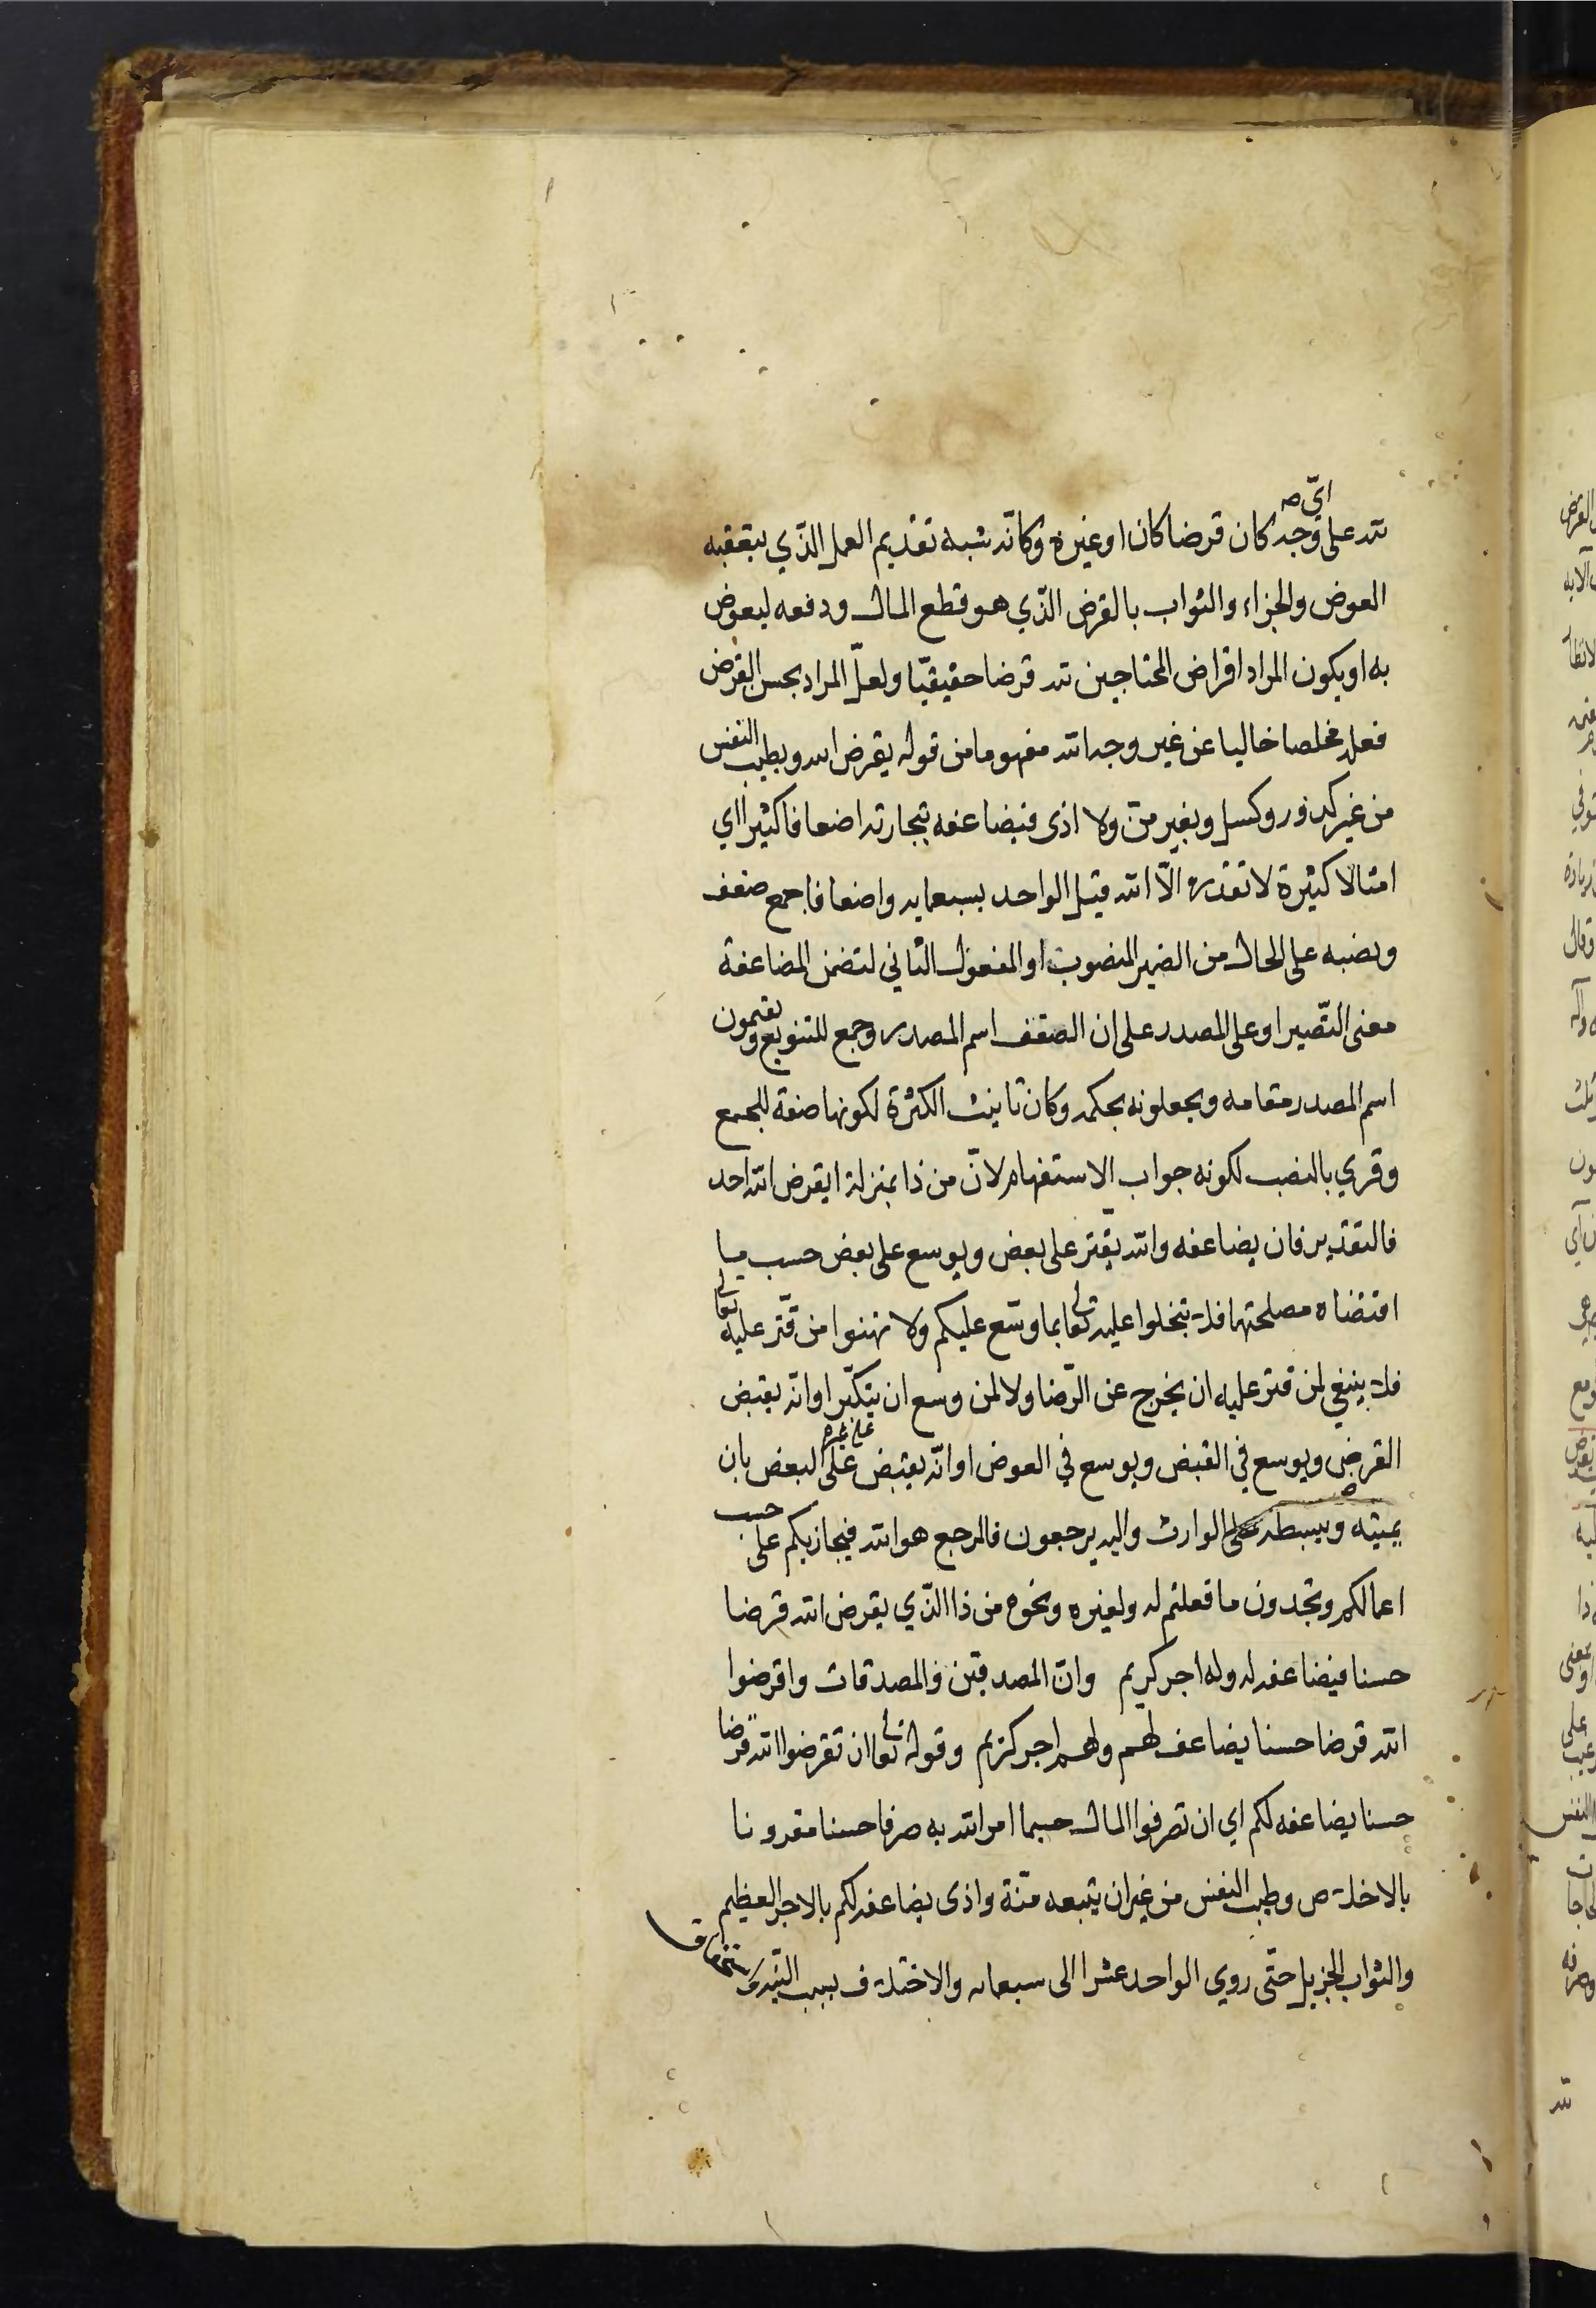 لله على وجه أيّ كان قرضا كان او غيره وكانّه شبه تقديم العمل الذّي يتعقبه
العوض والجزاء والثواب بالقرض الذّي هو قطع المال ودفعه ليعوض
به او يكون المراد اقراض المحتاجين لله قرضا حقيقيّا ولعلّ المراد بحسن القرض
فعله مخلصا خاليا عن غير وجه الله مفهوما من قوله يقرض الله وبطيب النفس
من غير كدورة وكسل وبغير منّ ولا اذى فيضاعفه بتجارته اضعافا كثيرا اي
امثالا كثيرة لا تقدره الّا الله قيل الواحد بسبعمايه واضعافا جمع ضعف
ونصبه على الحال من الضمير المنصوب او المفعول الثاني لتضمن المضاعفة
معنى التّصيير او على المصدر على ان الضعف اسم المصدر وجمع للتنويع ويقيمون
اسم المصدر مقامه ويجعلونه بحكمه وكان تانيث الكثرة لكونها صفة للجمع
وقري بالنصب لكونه جواب الاستفهام لانّ من ذا بمنزلة ايقرض الله احد
فالتقدير فان يضاعفه والله يقتر على بعض ويوسع على بعض حسب ما
اقتضاه مصلحتها فلا تبخلوا عليه تعالى بما وسّع عليكم ولا تهنوا من قتّر عليه تعالى
فلا ينبغي لمن قتر عليه ان يخرج عن الرّضا ولا لمن وسع ان يتكبّر او انّه يقبض
القرض ويوسع في القبض ويوسع في العوض او انّه يقبض على البعض بان
يميته ويبسطه على الوارث واليه يرجعون فالمرجع هو الله فيجازيكم على حسب
اعمالكم وتجدون ما فعلتم له ولغيره ونحوه من ذا الذّي يقرض الله قرضا
حسنا فيضاعفه له وله اجر كريم وانّ المصدقين والمصدقات واقرضوا
الله قرضا حسنا يضاعف لهم ولهم اجر كريم وقوله تعالى ان تقرضوا الله قرضا
حسنا يضاعفه لكم اي ان تصرفوا المال حسبما امر الله به صرفا حسنا مقرونا
بالاخلاص وطيب النفس من غير ان يتبعه منّة واذى يضاعفه لكم بالاجر العظيم
والثواب الجزيل حتّى روي الواحد عشرا الى سبعمايه والاختلاف بسبب النيّة